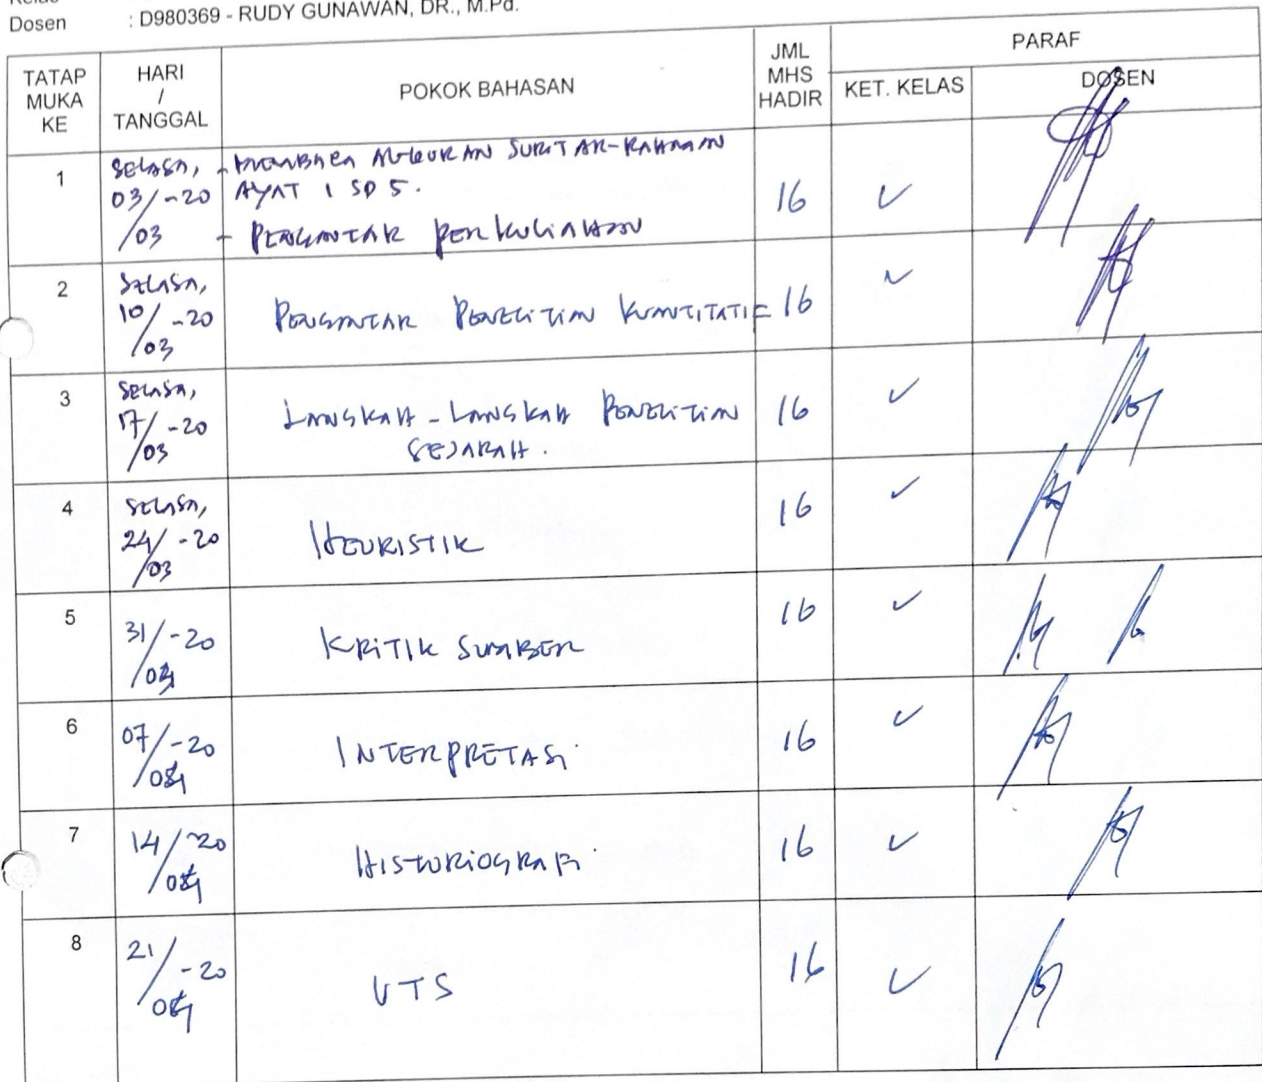 Dosen : D980369 - RUDY GUNAWAN, DR., M.Pd.
TATAP MUKA KE HARI / TANGGAL POKOK BAHASAN JML MHS HADIR PARAF
KET. KELAS DOSEN
1 SELASA, 03/03 -20 - MEMBACA ALQURAN SURAT AR-RAHMAN
AYAT 1 SD 5. 16
- PENGANTAR PERKULIAHAN
2 SELASA, 10/03 -20 PENGANTAR PENELITIAN KUANTITATIF 16
3 SELASA, 17/03 -20 LANGKAH - LANGKAH PENELITIAN 16
SEJARAH.
4 SELASA, 24/03 -20 HEURISTIK 16
5 31/ -20 KRITIK SUMBER 16
6 07/ -20 INTERPRETASI 16
7 14/ -20 HISTORIOGRAFI 16
8 21/ -20 UTS 16